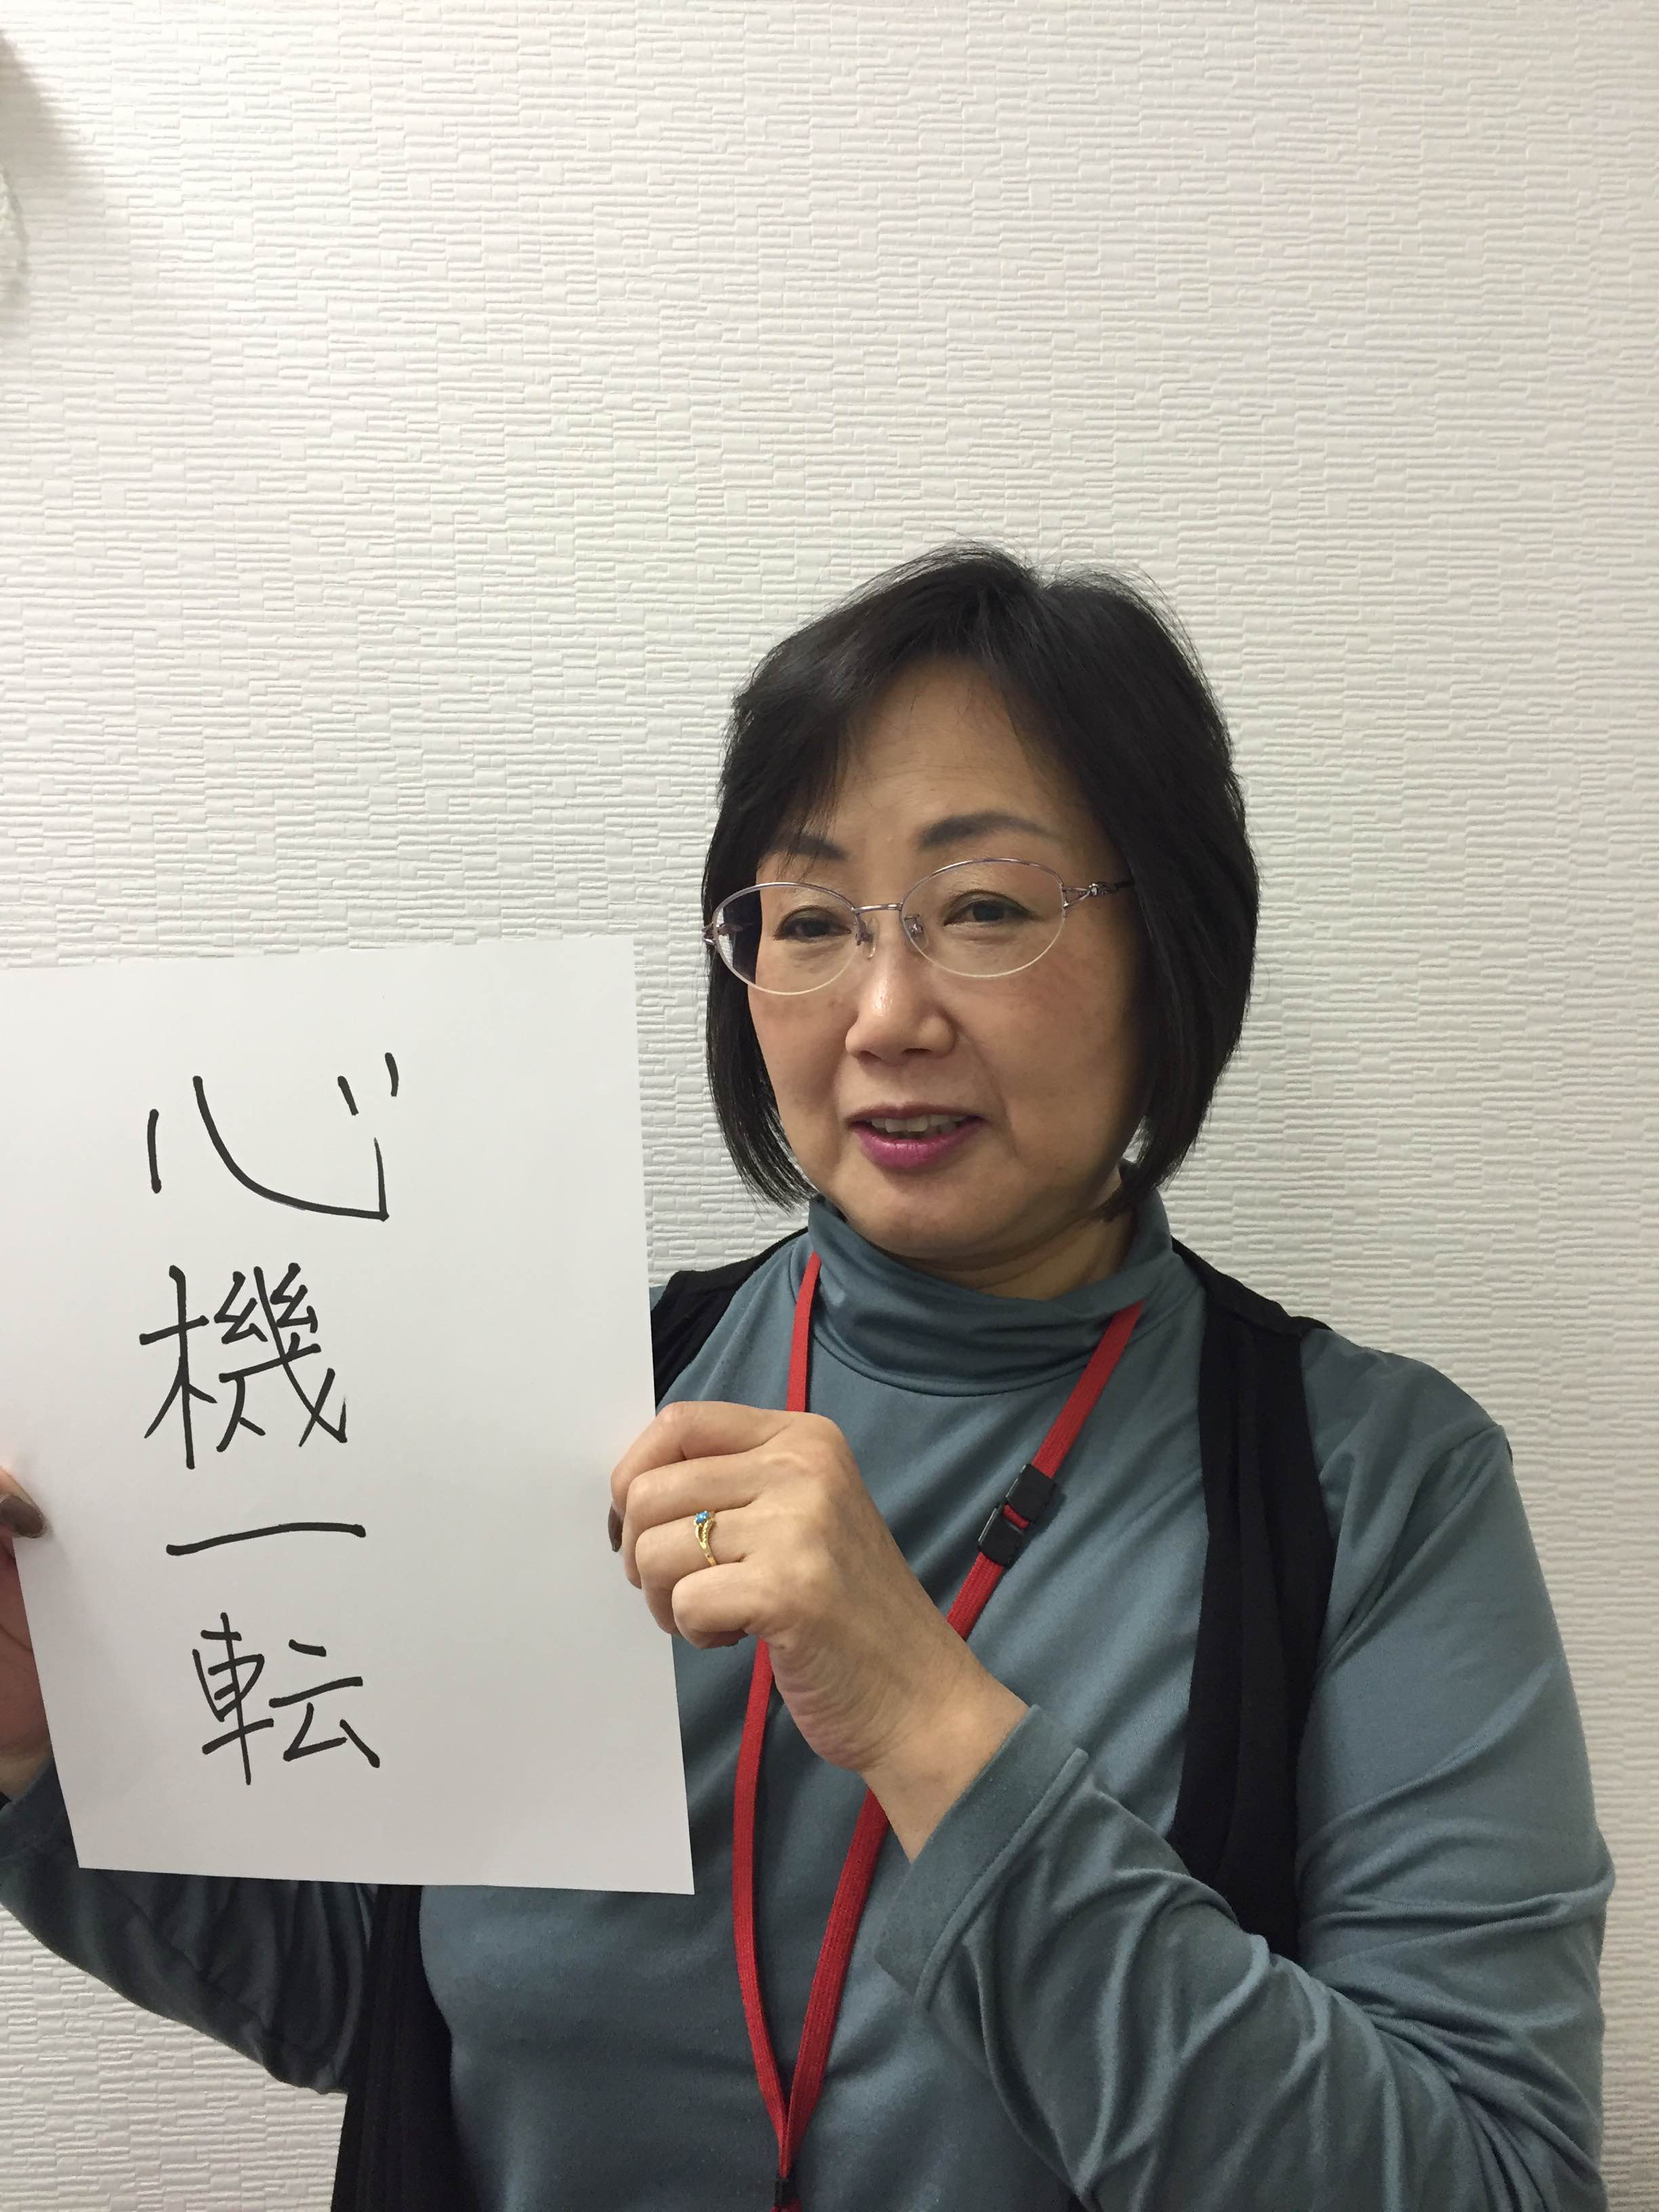 心機一転